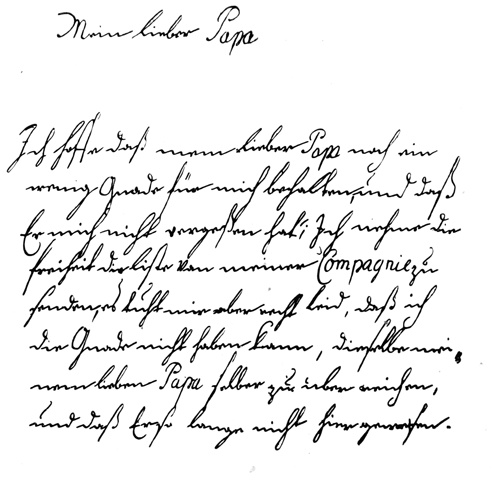 Mein lieber Papa
Ich hoffe daß mein lieber Papa noch ein
wenig Gnade für mich behalten, und daß
Er mich nicht vergeßen hat; Ich nehme die
freiheit die liste von meiner Compagnie zu
senden, es tuht mir aber recht leid, daß ich
die Gnade nicht haben kann, dieselbe mei-
nem lieben Papa selber zu über reichen,
und daß Er so lange nicht hier gewesen.